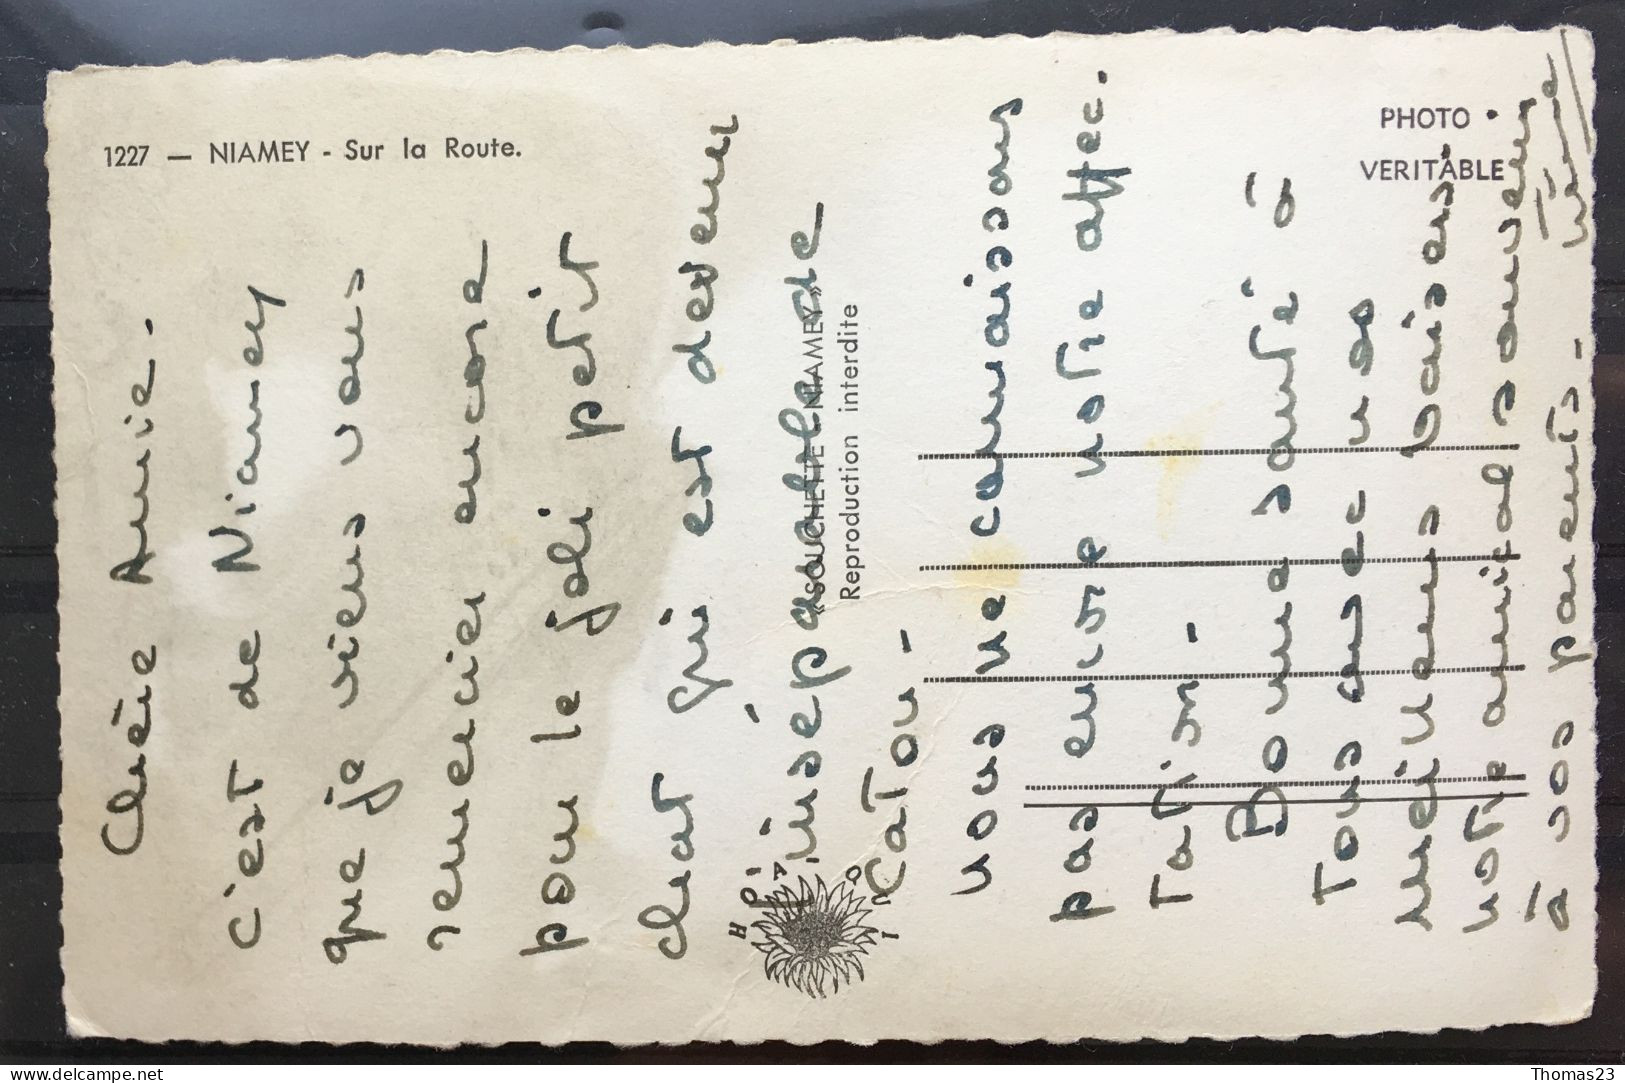 1227 — NIAMEY - Sur la Route.
PHOTO
VERITABLE
«SOUCHETTE NIAMEY»
Reproduction interdite
Chère Amie.
C'est de Niamey
que je viens vous
remercier encore
pour le joli petit
chat qui est devenu
inséparable de
Catou -
Nous ne connaissons
pas encore votre affec.
tation -
Bonne santé à
tous avec nos
meilleurs baisers.
Notre amical souvenir
à vos parents -
www.delcampe.net
Thomas23